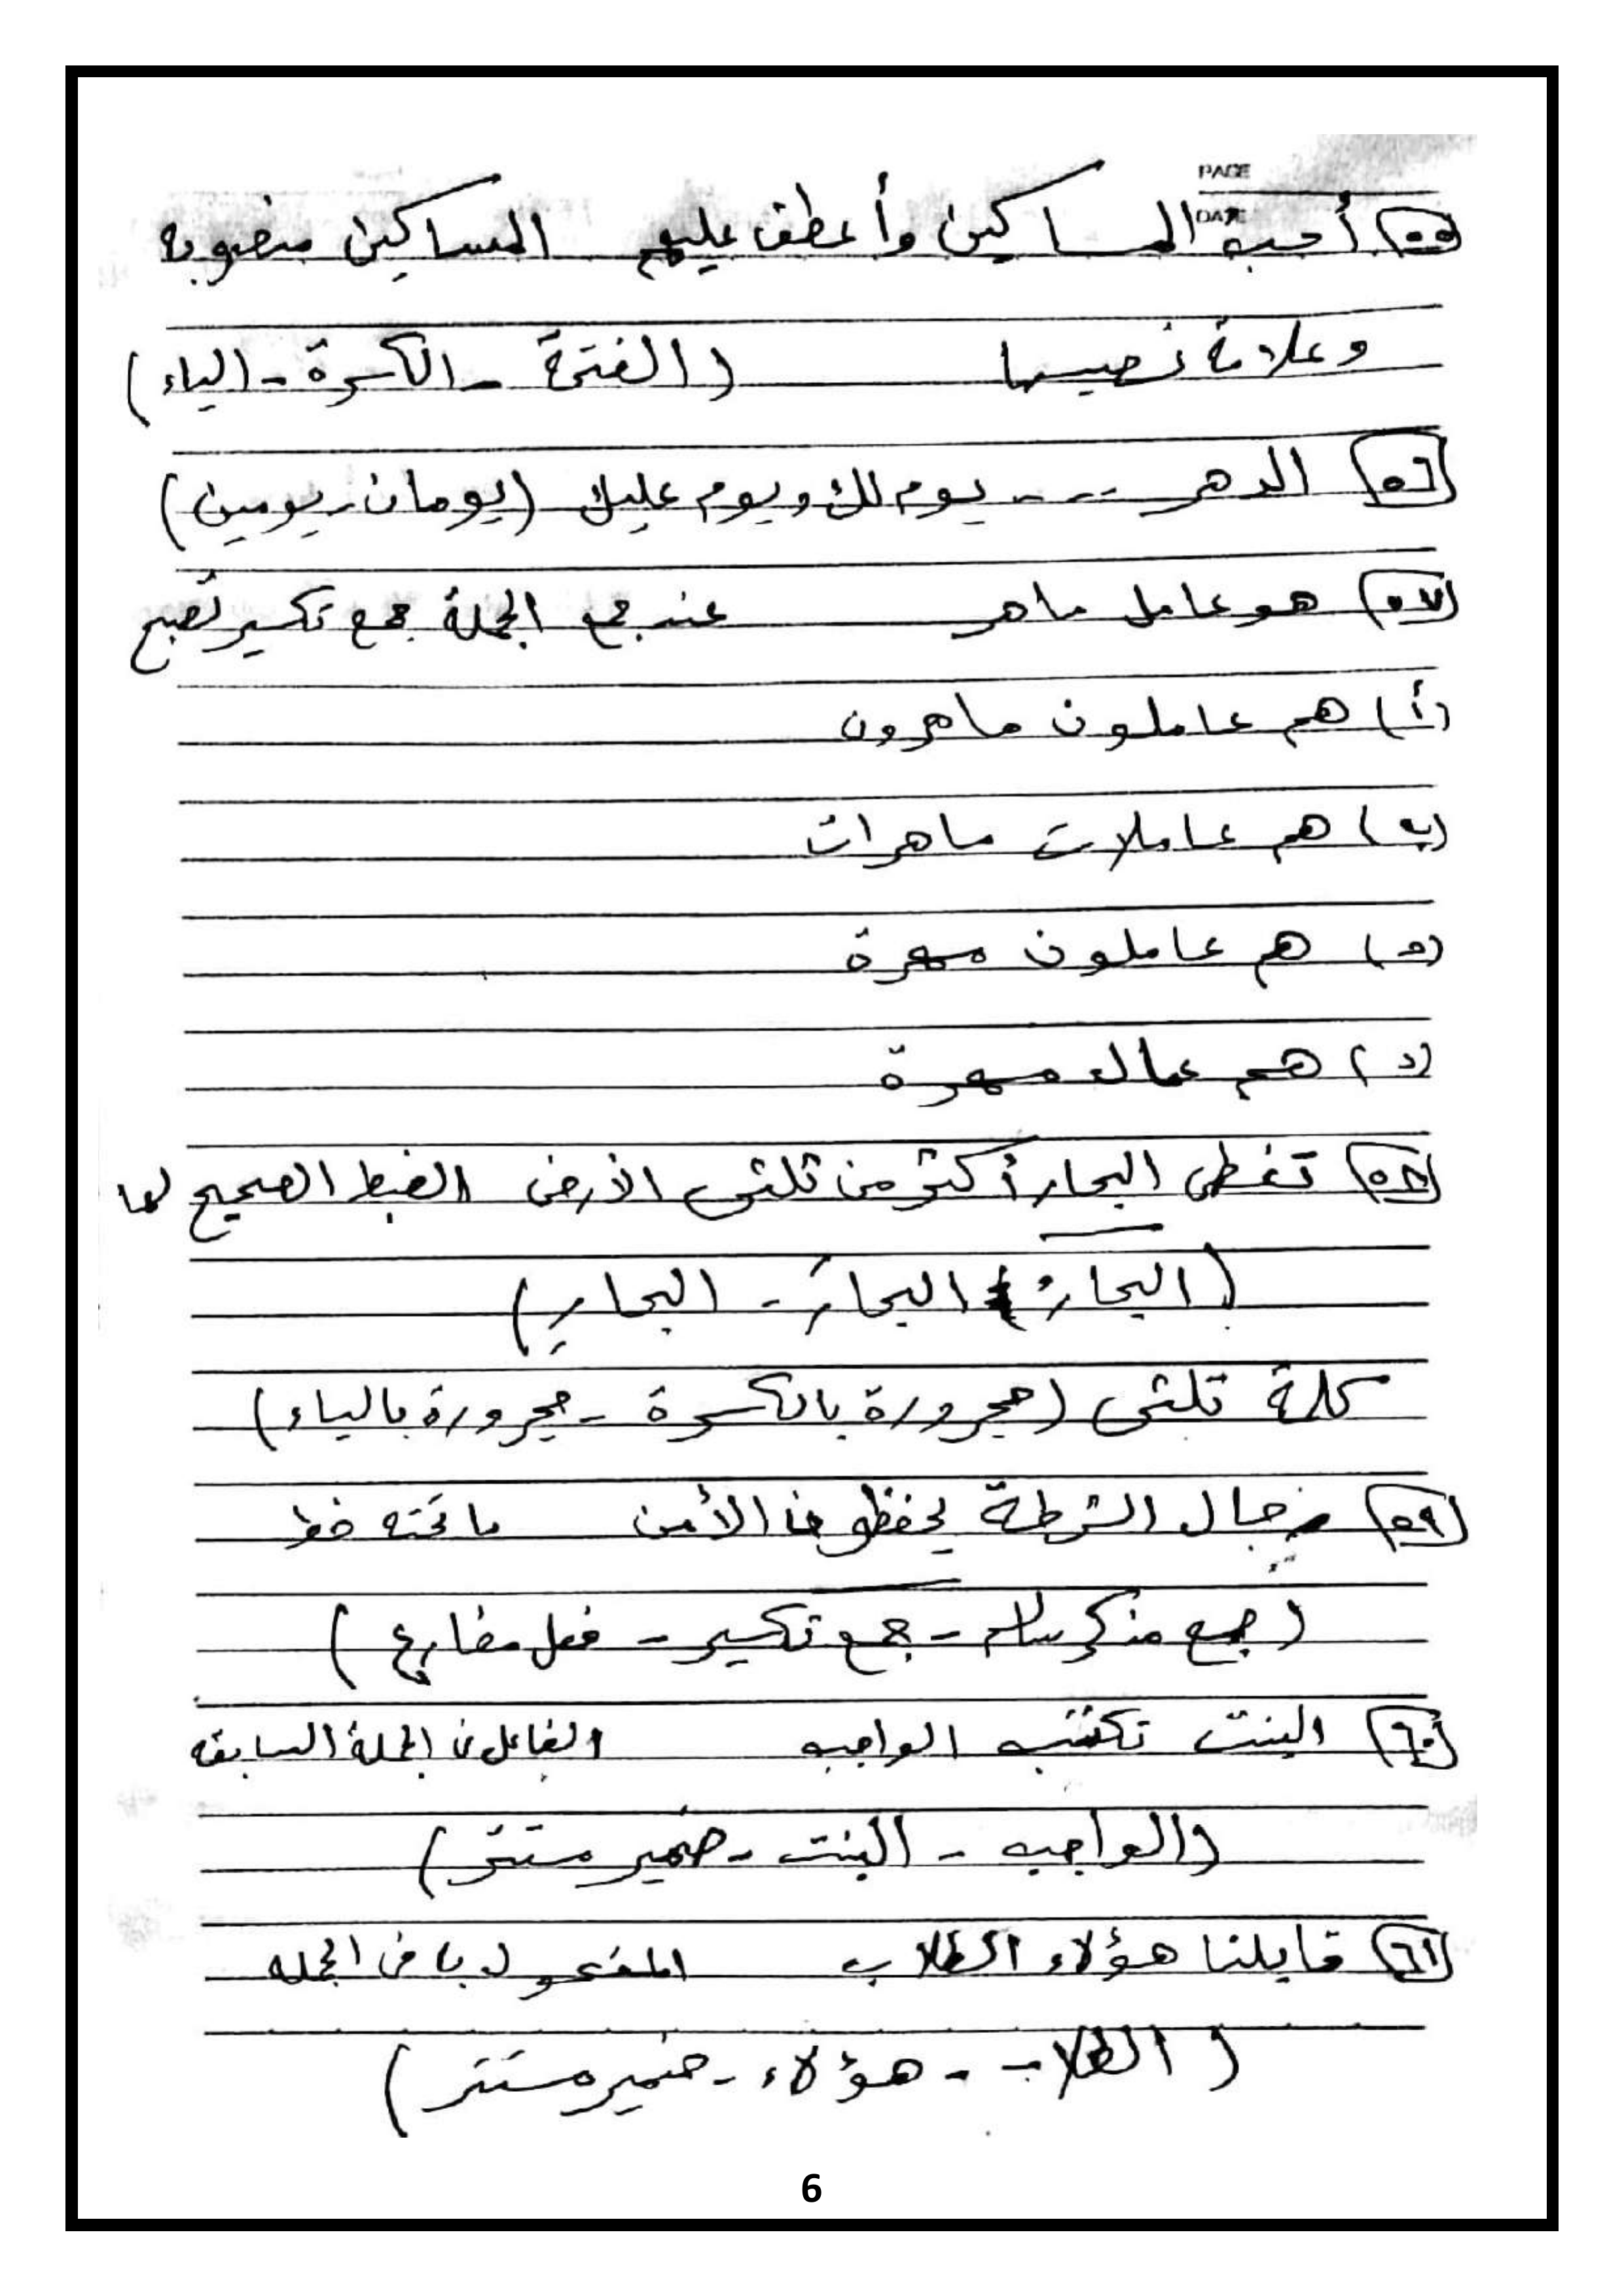 PAGE
DATE
٥٥) أحب المساكين وأعطف عليهم المساكين منصوبه
وعلامة نصبها (الفتحة - الكسرة - الياء)
٥٦) الدهر ---- يوم لك ويوم عليك (يومان - يومين)
٥٧) هو عامل ماهر عند جمع الجملة جمع تكسير تصبح
(أ) هم عاملون ماهرون
(ب) هم عاملات ماهرات
(ج) هم عاملون مهرة
(د) هم عمال مهرة
٥٨) تغطى البحار أكثر من ثلثى الأرض الضبط الصحيح لما
(البحارُ - البحارَ - البحارِ)
كلمة ثلثى (مجرورة بالكسرة - مجرورة بالياء)
٥٩) رجال الشرطة يحفظون الأمن ما تحته خط
(جمع مذكر سالم - جمع تكسير - فعل مضارع)
٦٠) البنت تكتب الواجب الفاعل فى الجملة السابقه
(الواجب - البنت - ضمير مستتر)
٦١) قابلنا هؤلاء الطلاب المفعول به فى الجمله
(الطلاب - هؤلاء - ضمير مستتر)
6